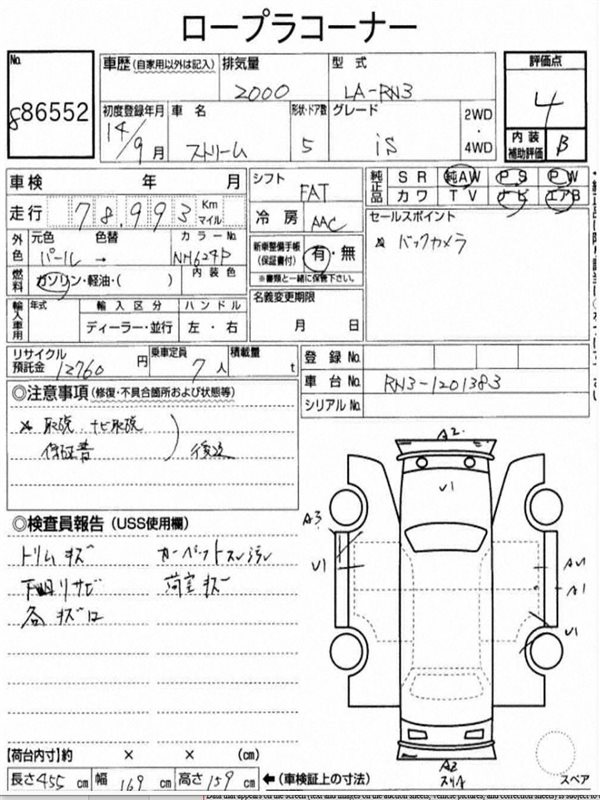 ロープラコーナー
No.
86552
車歴 (自家用以外は記入)
排気量
2000
型式
LA-RN3
評価点
4
初度登録年月
14/9月
車名
ストリーム
形状・ドア数
5
グレード
iS
2WD
・
4WD
内装
補助評価
B
車検 年 月
シフト
FAT
純正品
SR 純AW PS PW
カワ TV ナビ エアB
走行 78,993 Km
マイル
冷房 AAC
セールスポイント
※ バックカメラ
外色
元色 色替 カラーNo.
パール → NH624P
新車整備手帳
(保証書付)
有・無
※書類と一緒に保管下さい。
燃料
ガソリン・軽油・( )
内装色
名義変更期限
月 日
輸入車用
年式
輸入区分
ハンドル
ディーラー・並行
左・右
リサイクル
預託金
12760 円
乗車定員
7人
積載量
t
登録No.
車台No.
RN3-1201383
シリアルNo.
◎注意事項 (修復・不具合箇所および状態等)
※ 取説 ナビ取説
保証書
後送
◎検査員報告 (USS使用欄)
トリムキズ カーペットスレ汚レ
下回リサビ 荷室キズ
各キズ凹
A2
U1
A3
U1
A1
U1
A2
スリキズ
スペア
【荷台内寸】約 × × (cm)
長さ455cm 幅169cm 高さ159cm
←(車検証上の寸法)